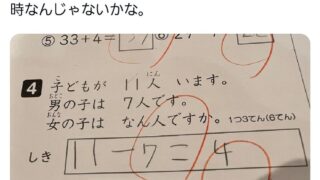 時なんじゃないかな。
⑤ 33+4=37 ⑥ 27
4 子どもが 11人 います。
男の子は 7人です。
女の子は なん人ですか。 1つ3てん(6てん)
しき 11-7=4